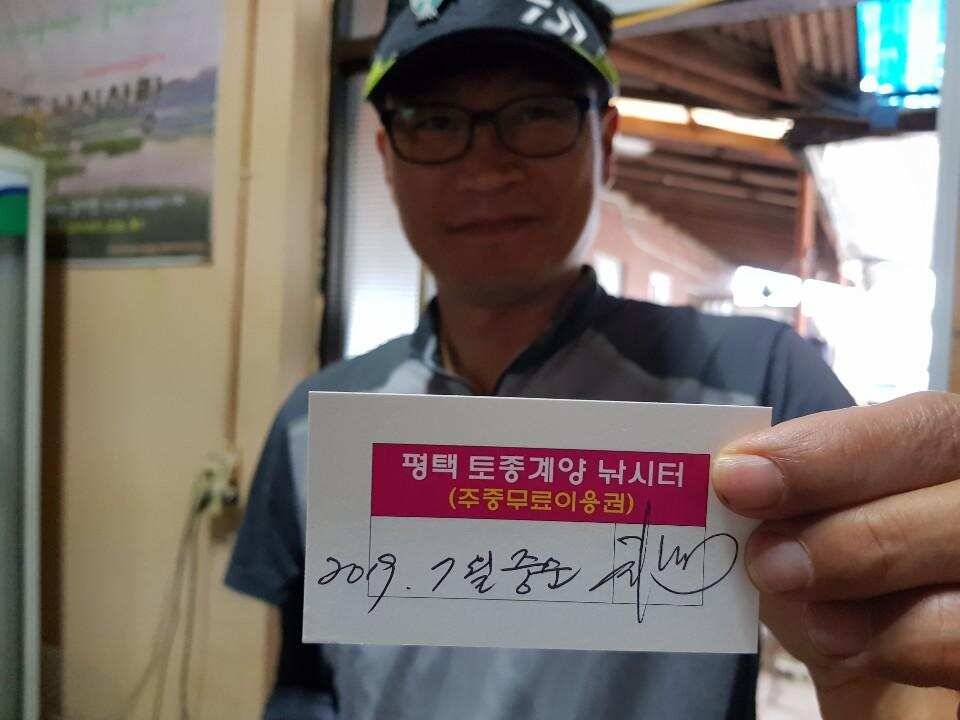 평택 토종계양 낚시터
(주중무료이용권)
2019. 7월 중순